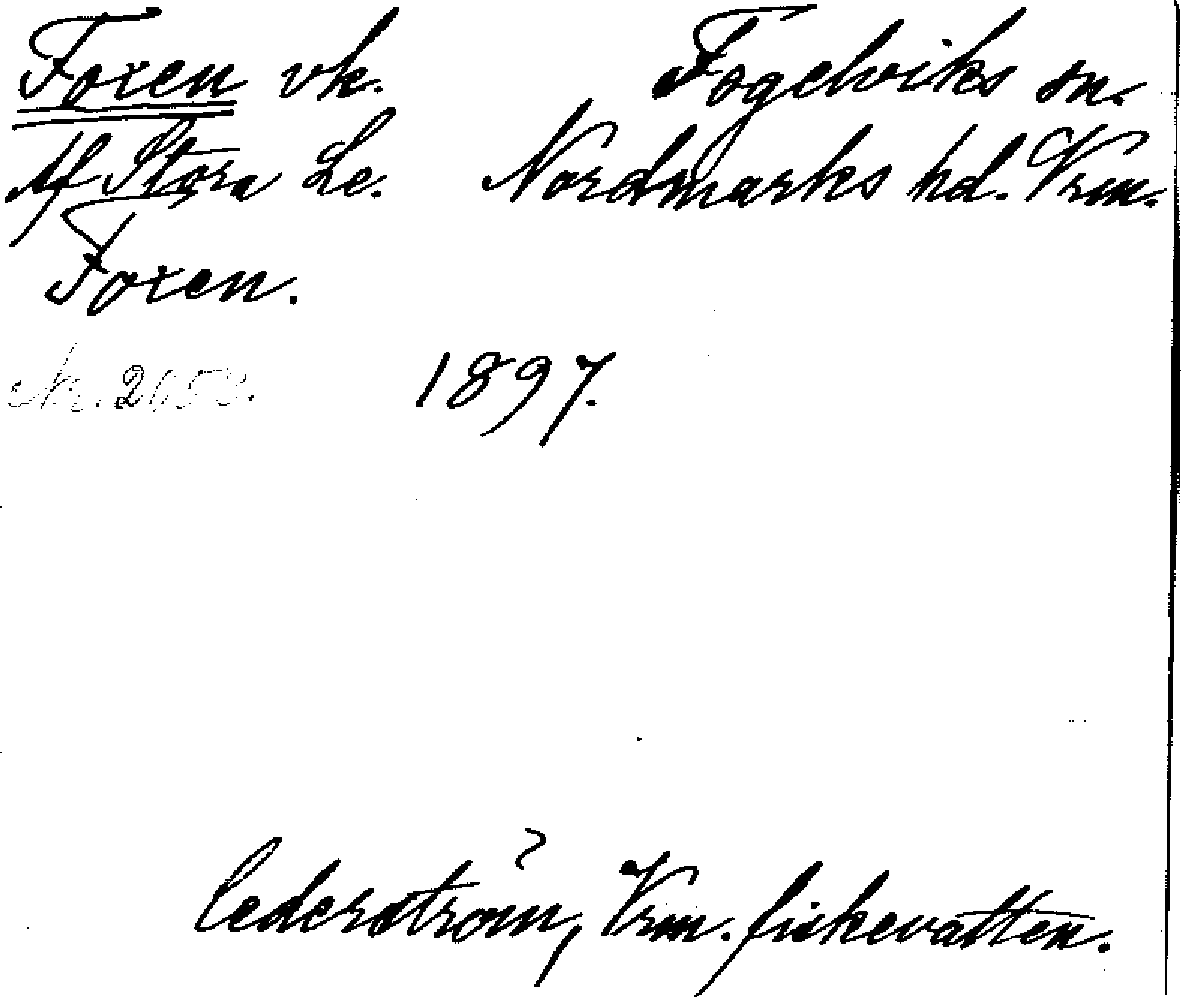 Foxen vk. Fogelviks sn.
Af Stora Le. Nordmarks hd. Vrm.
Foxen.
1897.
Cederström, Vrm. fiskevatten.